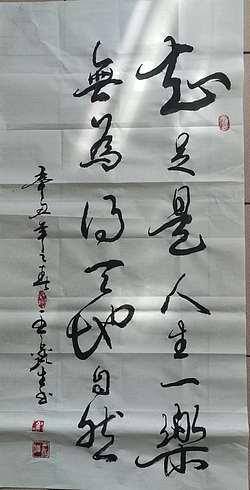 知足是人生一樂
無為得天地自然
辛丑年之春